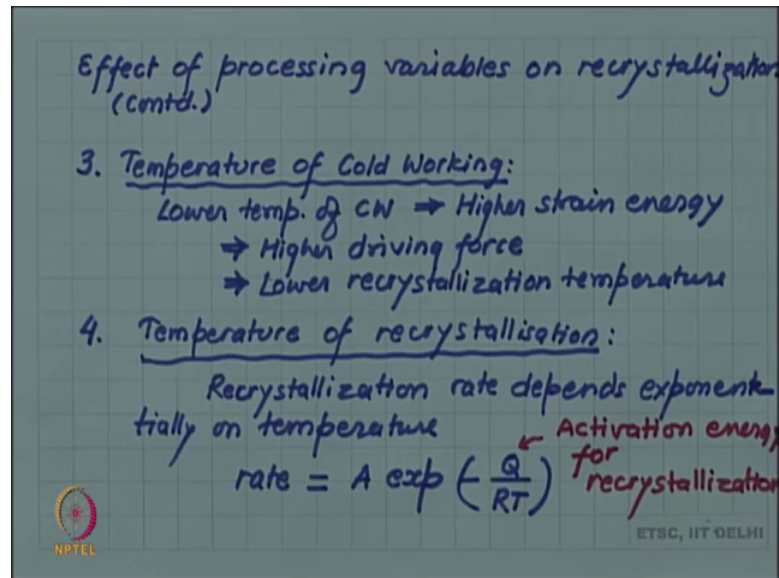 Effect of processing variables on recrystallization
(contd.)
3. Temperature of Cold Working:
Lower temp. of CW ⇒ Higher strain energy
⇒ Higher driving force
⇒ Lower recrystallization temperature
4. Temperature of recrystallisation:
Recrystallization rate depends exponen-
tially on temperature
rate = A exp (-Q/RT) ← Activation energy
for
recrystallization
NPTEL
ETSC, IIT DELHI